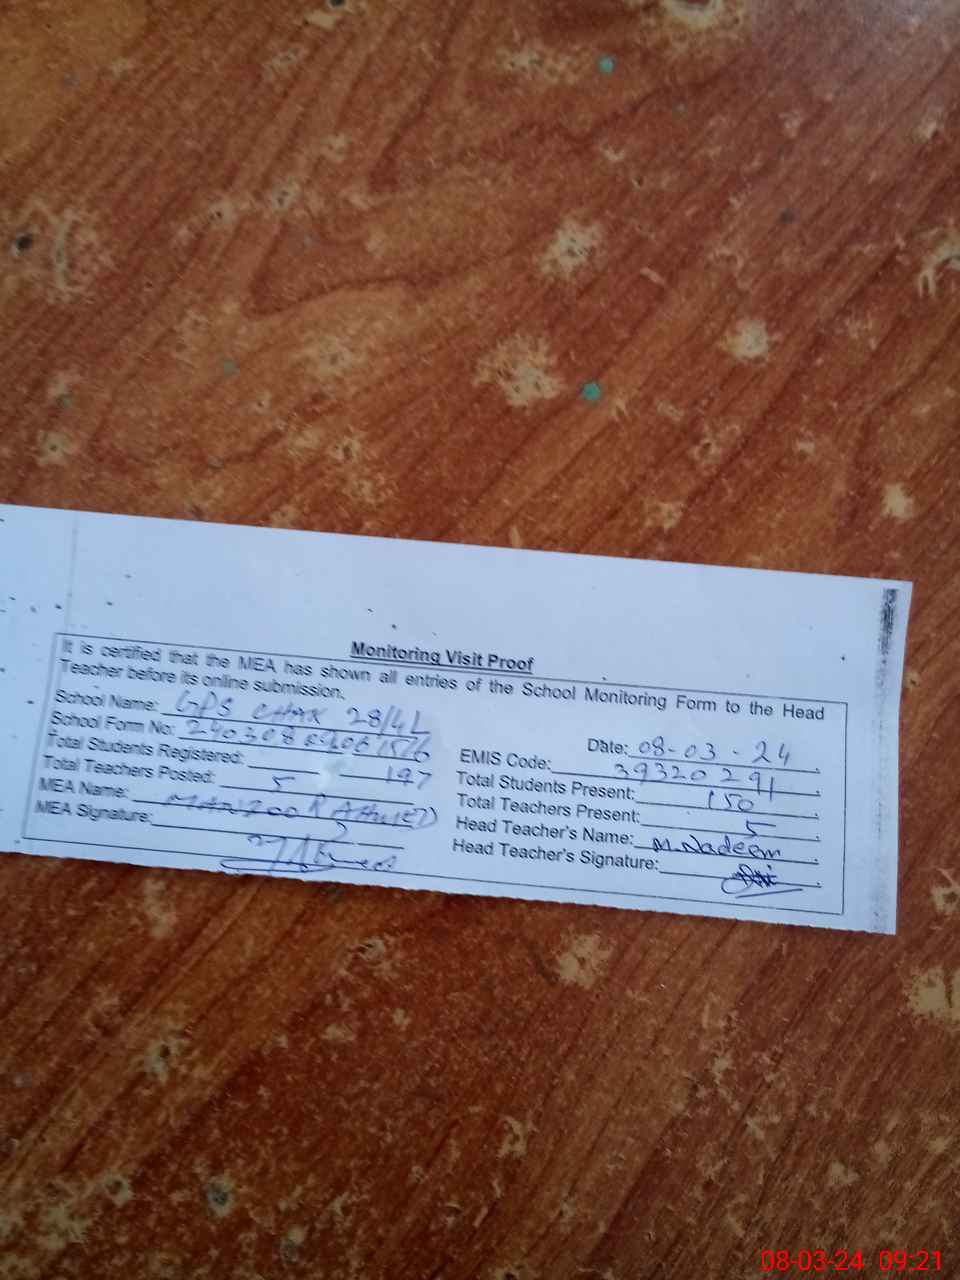 Monitoring Visit Proof
It is certified that the MEA has shown all entries of the School Monitoring Form to the Head
Teacher before its online submission.
Date: 08-03-24
School Name: GPS CHAK 28/4L
EMIS Code: 39320291
School Form No:
Total Students Present: 150
Total Students Registered: 197
Total Teachers Present: 5
Total Teachers Posted: 5
Head Teacher's Name: M.Nadeem
MEA Name: MANZOOR AHMED
Head Teacher's Signature:
MEA Signature:
08-03-24 09:21